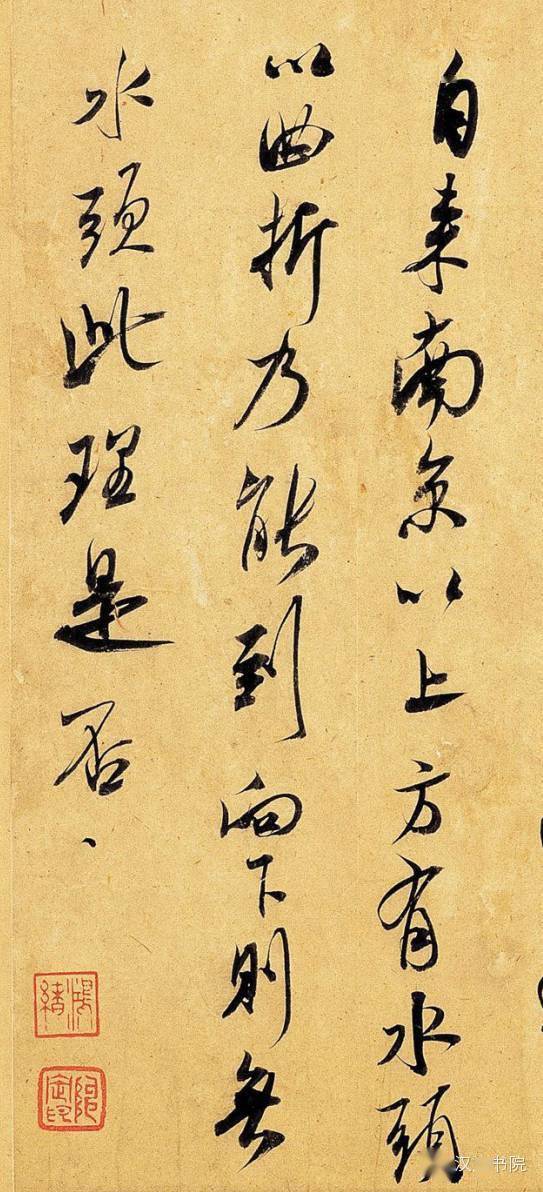 自来南京以上方有水頭
以曲折乃能到向下則無
水頭此理是否、
鴻緒
汉 书院